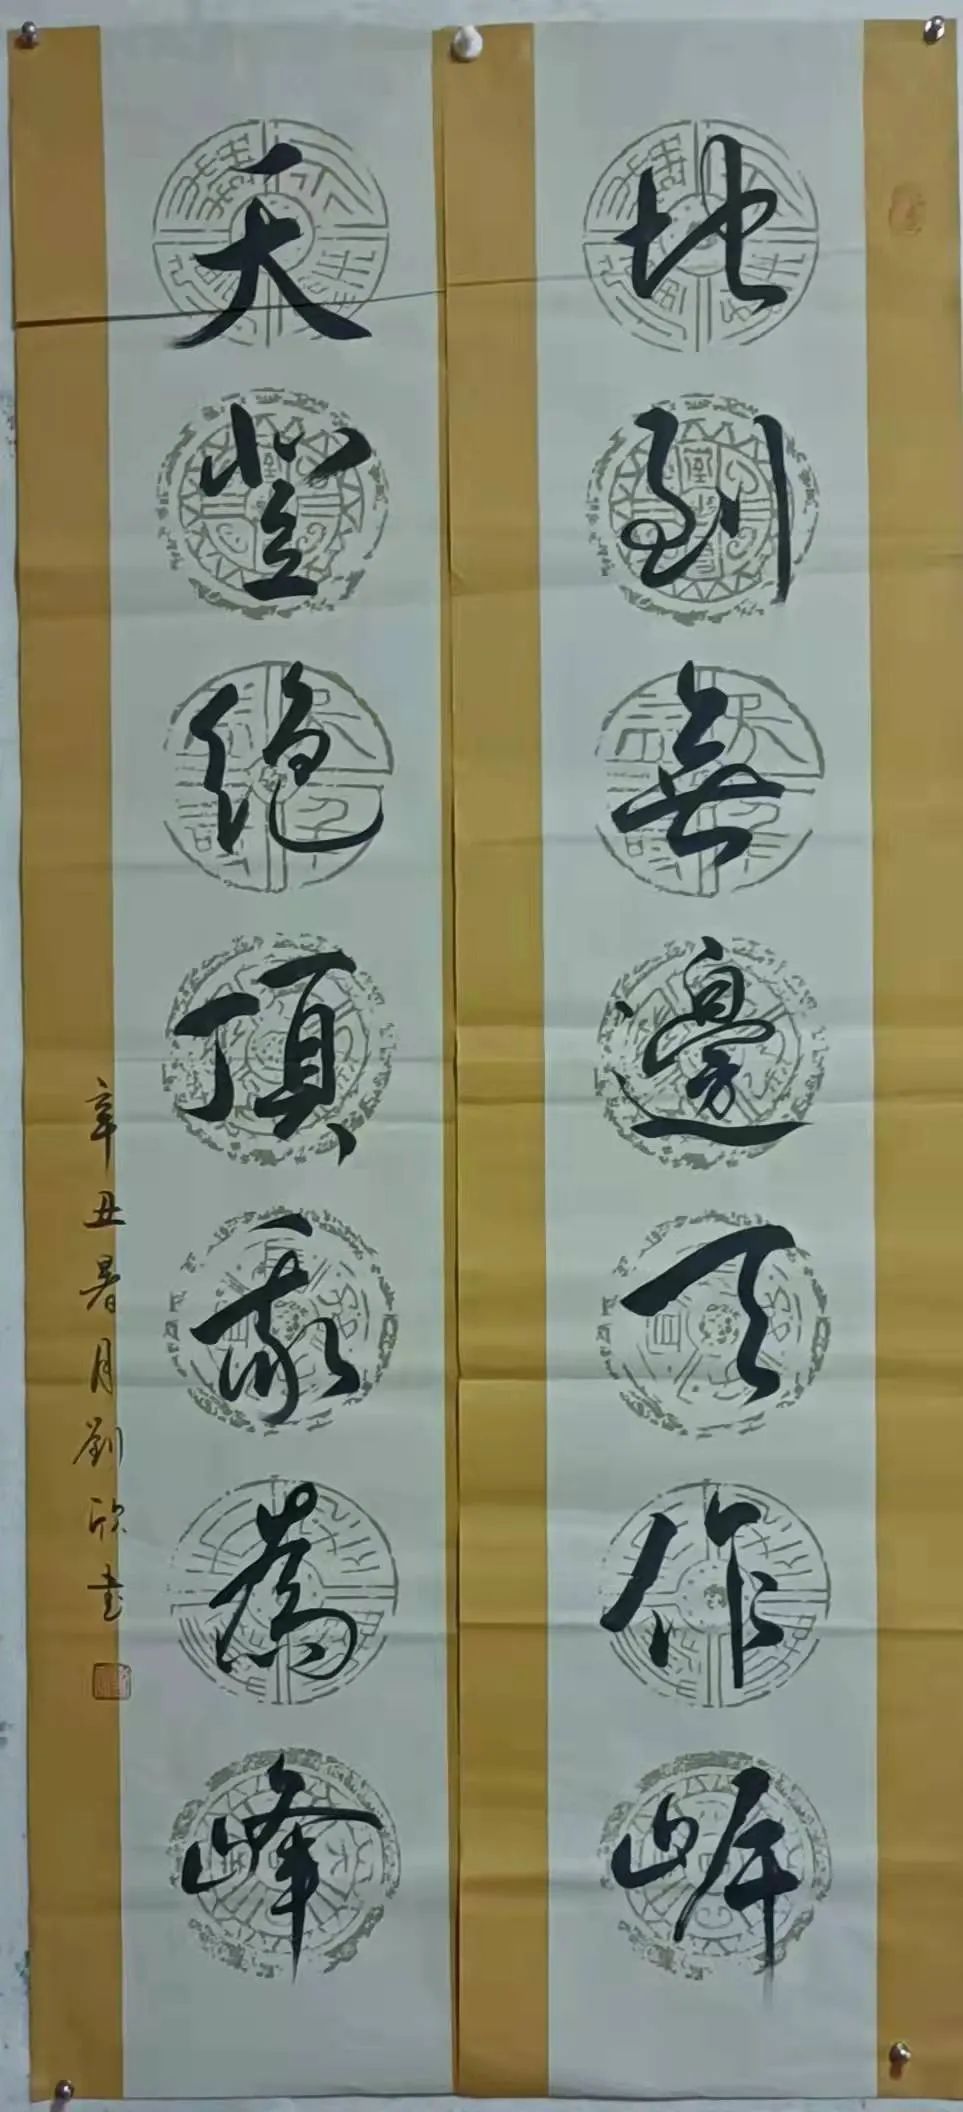 地到無邊天作岸
天登絶頂我為峰
辛丑暑月劉欣书